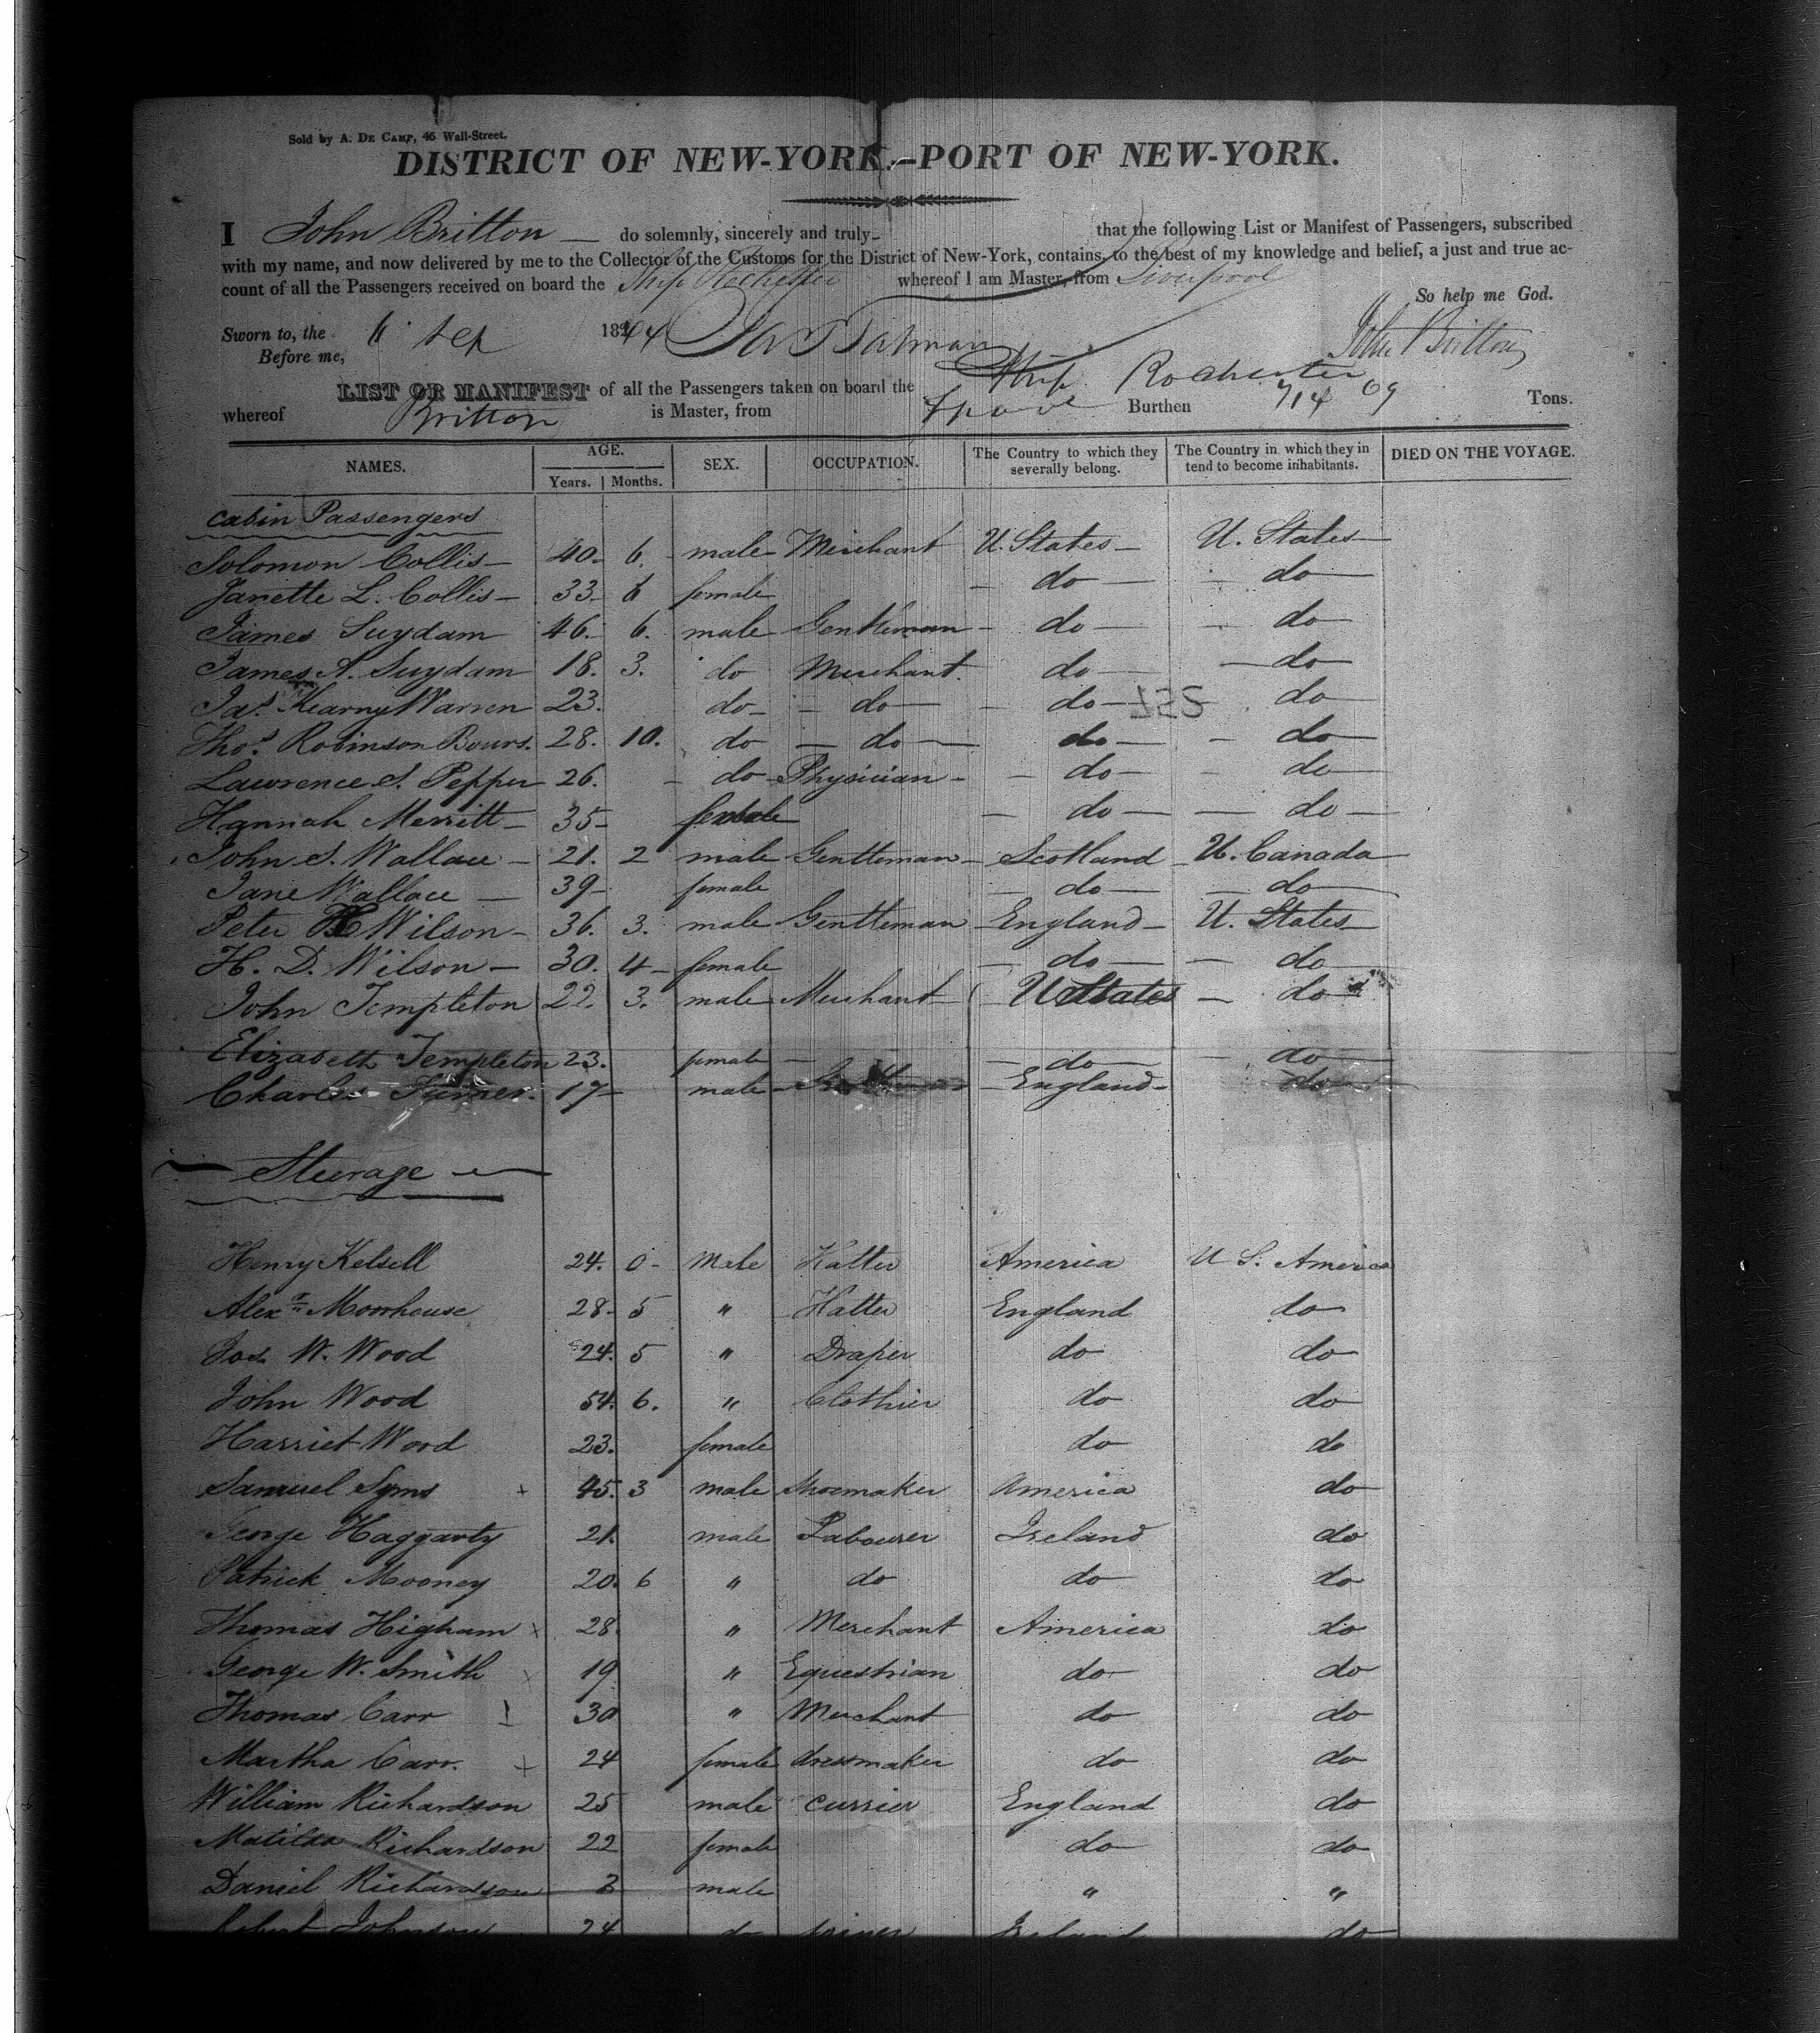 Sold by A. De Camp, 46 Wall-Street.
DISTRICT OF NEW-YORK.—PORT OF NEW-YORK.
I John Britton — do solemnly, sincerely and truly that the following List or Manifest of Passengers, subscribed
with my name, and now delivered by me to the Collector of the Customs for the District of New-York, contains, to the best of my knowledge and belief, a just and true ac-
count of all the Passengers received on board the Ship Rochester whereof I am Master, from Liverpool
So help me God.
Sworn to, the 11 Sep 1844 John Britton
Before me,
LIST OR MANIFEST of all the Passengers taken on board the Ship Rochester
whereof Britton is Master, from Lpool Burthen 714 09 Tons.
NAMES. AGE. SEX. OCCUPATION. The Country to which they severally belong. The Country in which they in tend to become inhabitants. DIED ON THE VOYAGE.
Years. Months.
Cabin Passengers
Solomon Collis — 40 6. male Merchant U. States — U. States
Janette L. Collis — 33 6 female — do — — do —
James Suydam 46. 6. male Gentleman — do — — do
James A. Suydam 18. 3. do Merchant. do — — do
Jas. Kearny Warren 23. do — do — — do — do
Thos. Robinson Bours. 28. 10. do — do — do — — do
Lawrence S. Pepper 26. — do Physician — — do — — do
Hannah Merritt — 35 — female — do — — do —
John S. Wallace — 21. 2 male Gentleman — Scotland U. Canada
Jane Wallace — 39 — female — do — — do —
Peter Wilson — 36. 3. male Gentleman England — U. States
H. D. Wilson — 30. 4 — female — do — — do
John Templeton 22. 3. male Merchant U States — do
Elizabeth Templeton 23. female — — do — — do
Charles Turner. 17 — male England — do
— Steerage —
Henry Kelsell 24. 0 - Male Hatter America U S. America
Alexr. Moorhouse 28. 5 " Hatter England do
Jos. W. Wood 24. 5 " Draper do do
John Wood 54. 6. " Clothier do do
Harriet Wood 23. female do do
Samuel Syms + 45. 3 male Shoemaker America do
George Haggarty 21. male Labourer Ireland do
Patrick Mooney 20. 6 " do do do
Thomas Higham x 28 " Merchant America do
George W. Smith x 19 " Equestrian do do
Thomas Carr 30 " Merchant do do
Martha Carr. + 24 female dressmaker do do
William Richardson 25 male currier England do
Matilda Richardson 22 female do do
Daniel Richardson male " "
Robert Johnson 24 do Ireland do